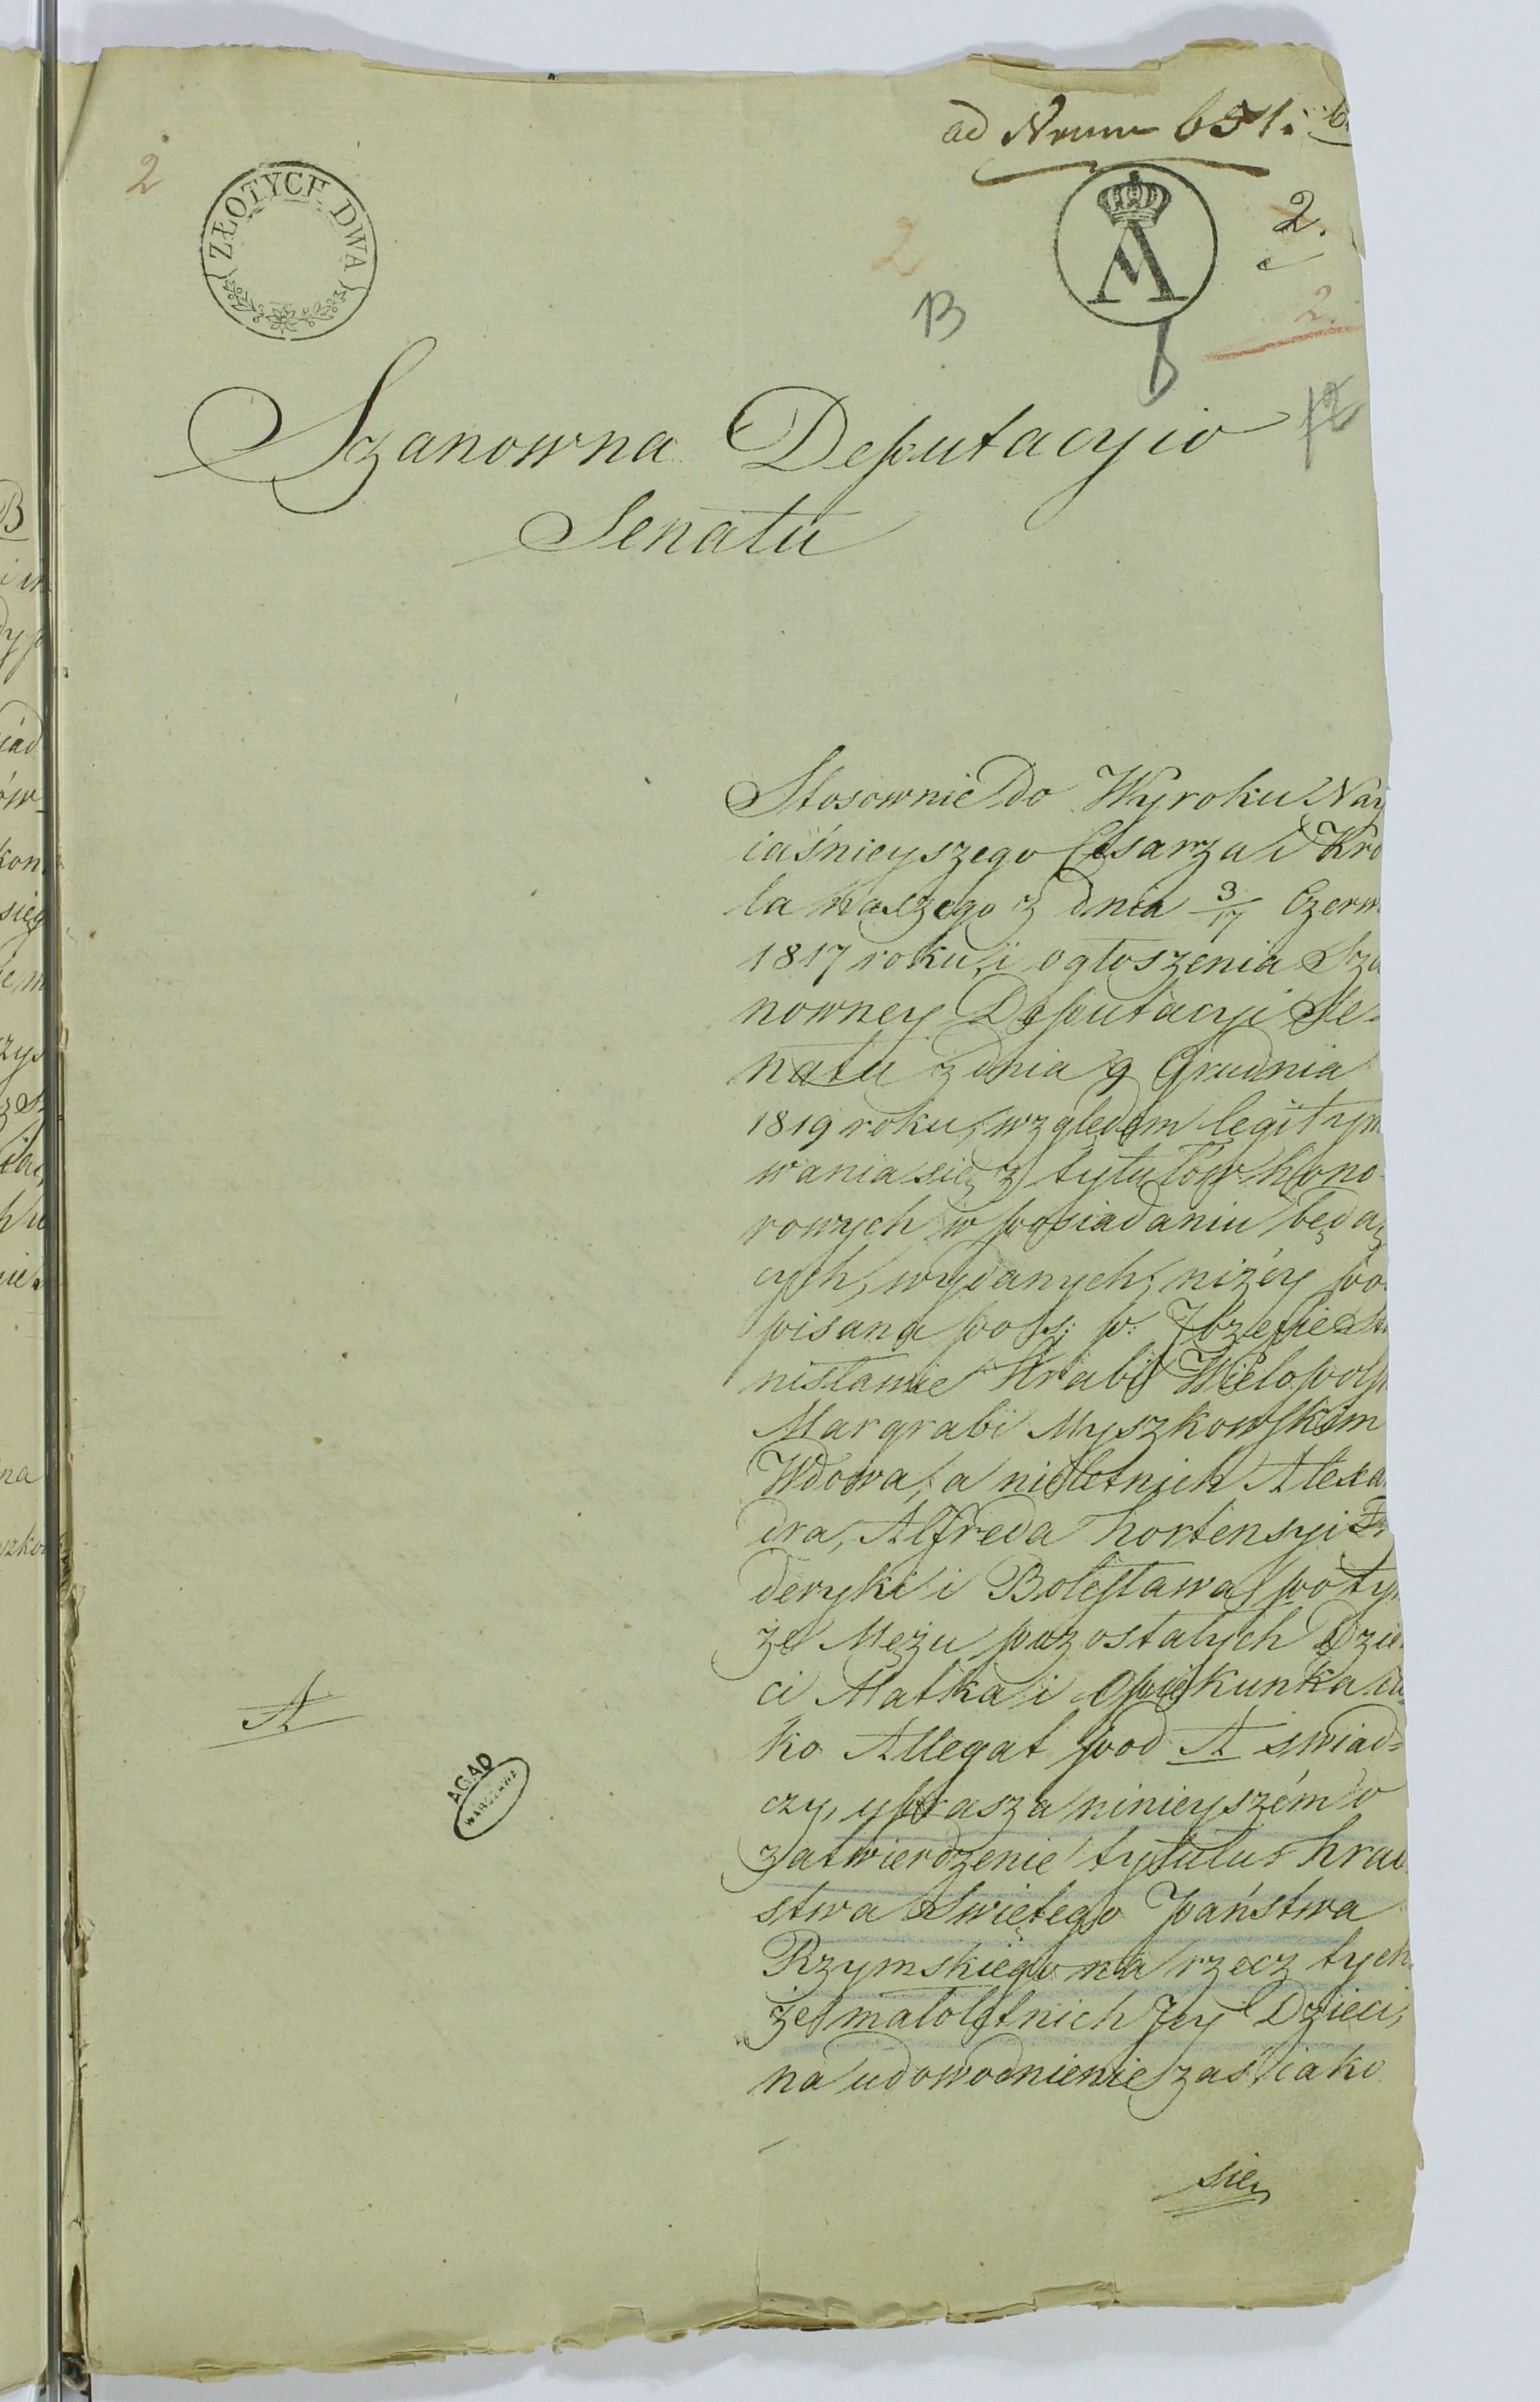 ad Num 651.
2
ZŁOTYCH DWA
2
A
2.
B
2.
6
Szanowna Deputacyio
Senatu
Stosownie do Wyroku Nay
iaśnieyszego Cesarza i Kró
la naszego z dnia 3/17 Czerw
1817 roku, i ogłoszenia Sza
nowney Deputacyi Se-
natu z dnia 9 Grudnia
1819 roku, względem legitym
wania się z tytułów hono-
rowych w posiadaniu będą
cych, wydanych; niżéy po
pisana po ś: p: Józefie Sta
nisławie Hrabi Wielopols
Margrabi Myszkowskim
Wdowa, a nieletnich Alexa
dra, Alfreda hortensyi Fr
deryki i Bolesława, po tym
że Mężu pozostałych Dzie
ci Matka i Opiekunka ia
A
ko Allegat pod A swiad-
czy, uprasza ninieyszém o
zatwierdzenie tytułu hrab
stwa Swiętego państwa
Rzymskiego na rzecz tych
że małoletnich Jey Dzieci,
na udowodnienie zaś, iako
się
AGAD
WARSZAWA